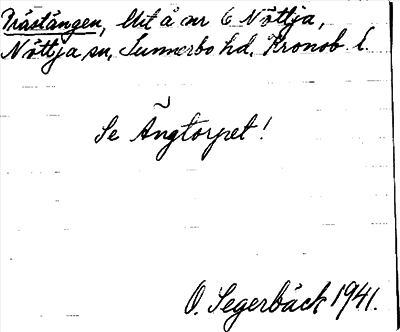 Prästängen, Ut å nr 6 Nöttja,
Nöttja sn, Sunnerbo hd, Kronob. l.
Se Ängtorpet!
O. Segerbäck 1941.